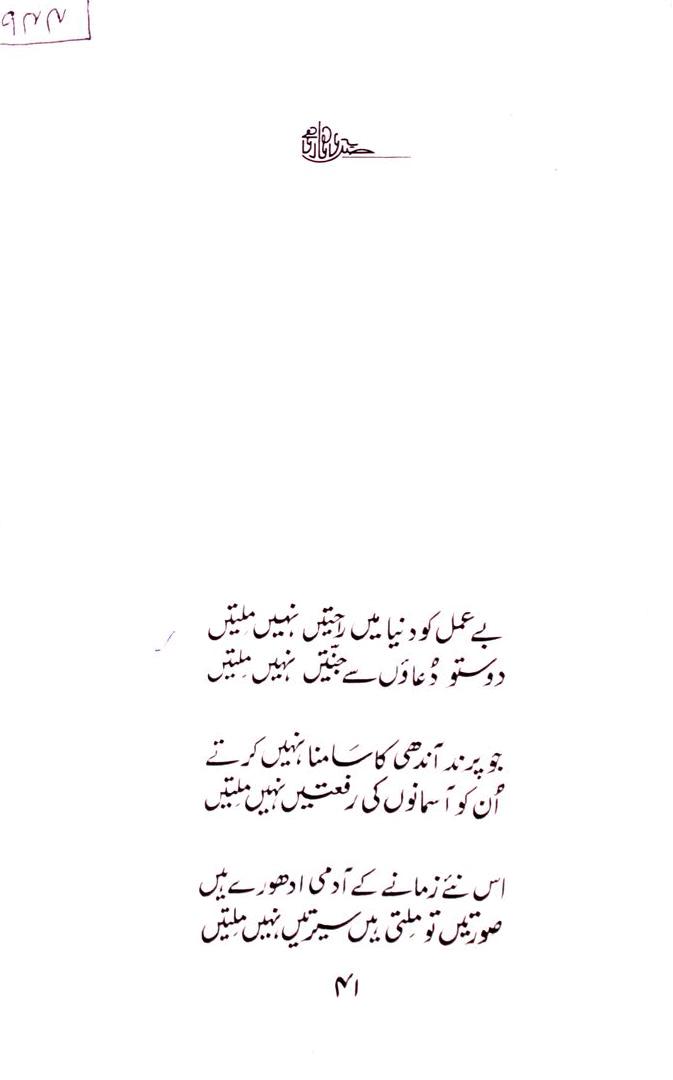 بے عمل کو دنیا میں راحتیں نہیں ملِتیں
دوستو دُعاؤں سے جنّتیں نہیں ملِتیں
جو پرند آندھی کا سَامنا نہیں کرتے
اُن کو آسمانوں کی رفعتیں نہیں ملِتیں
اس نئے زمانے کے آدمی ادھورے ہیں
صورتیں تو ملِتی ہیں سیرتیں نہیں ملِتیں
۴۱